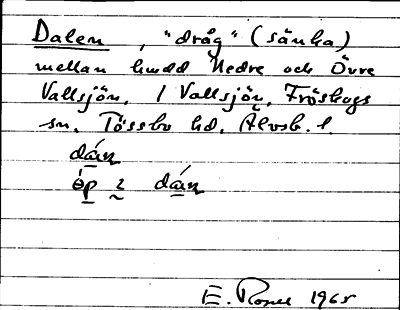 Dalen, "dråg" (sänka)
mellan Nedre och Övre
Vallsjön, i Vallsjön, Fröskogs
sn, Tössbo hd, Älvsb. l.
dán
öp i dán
E. 1965